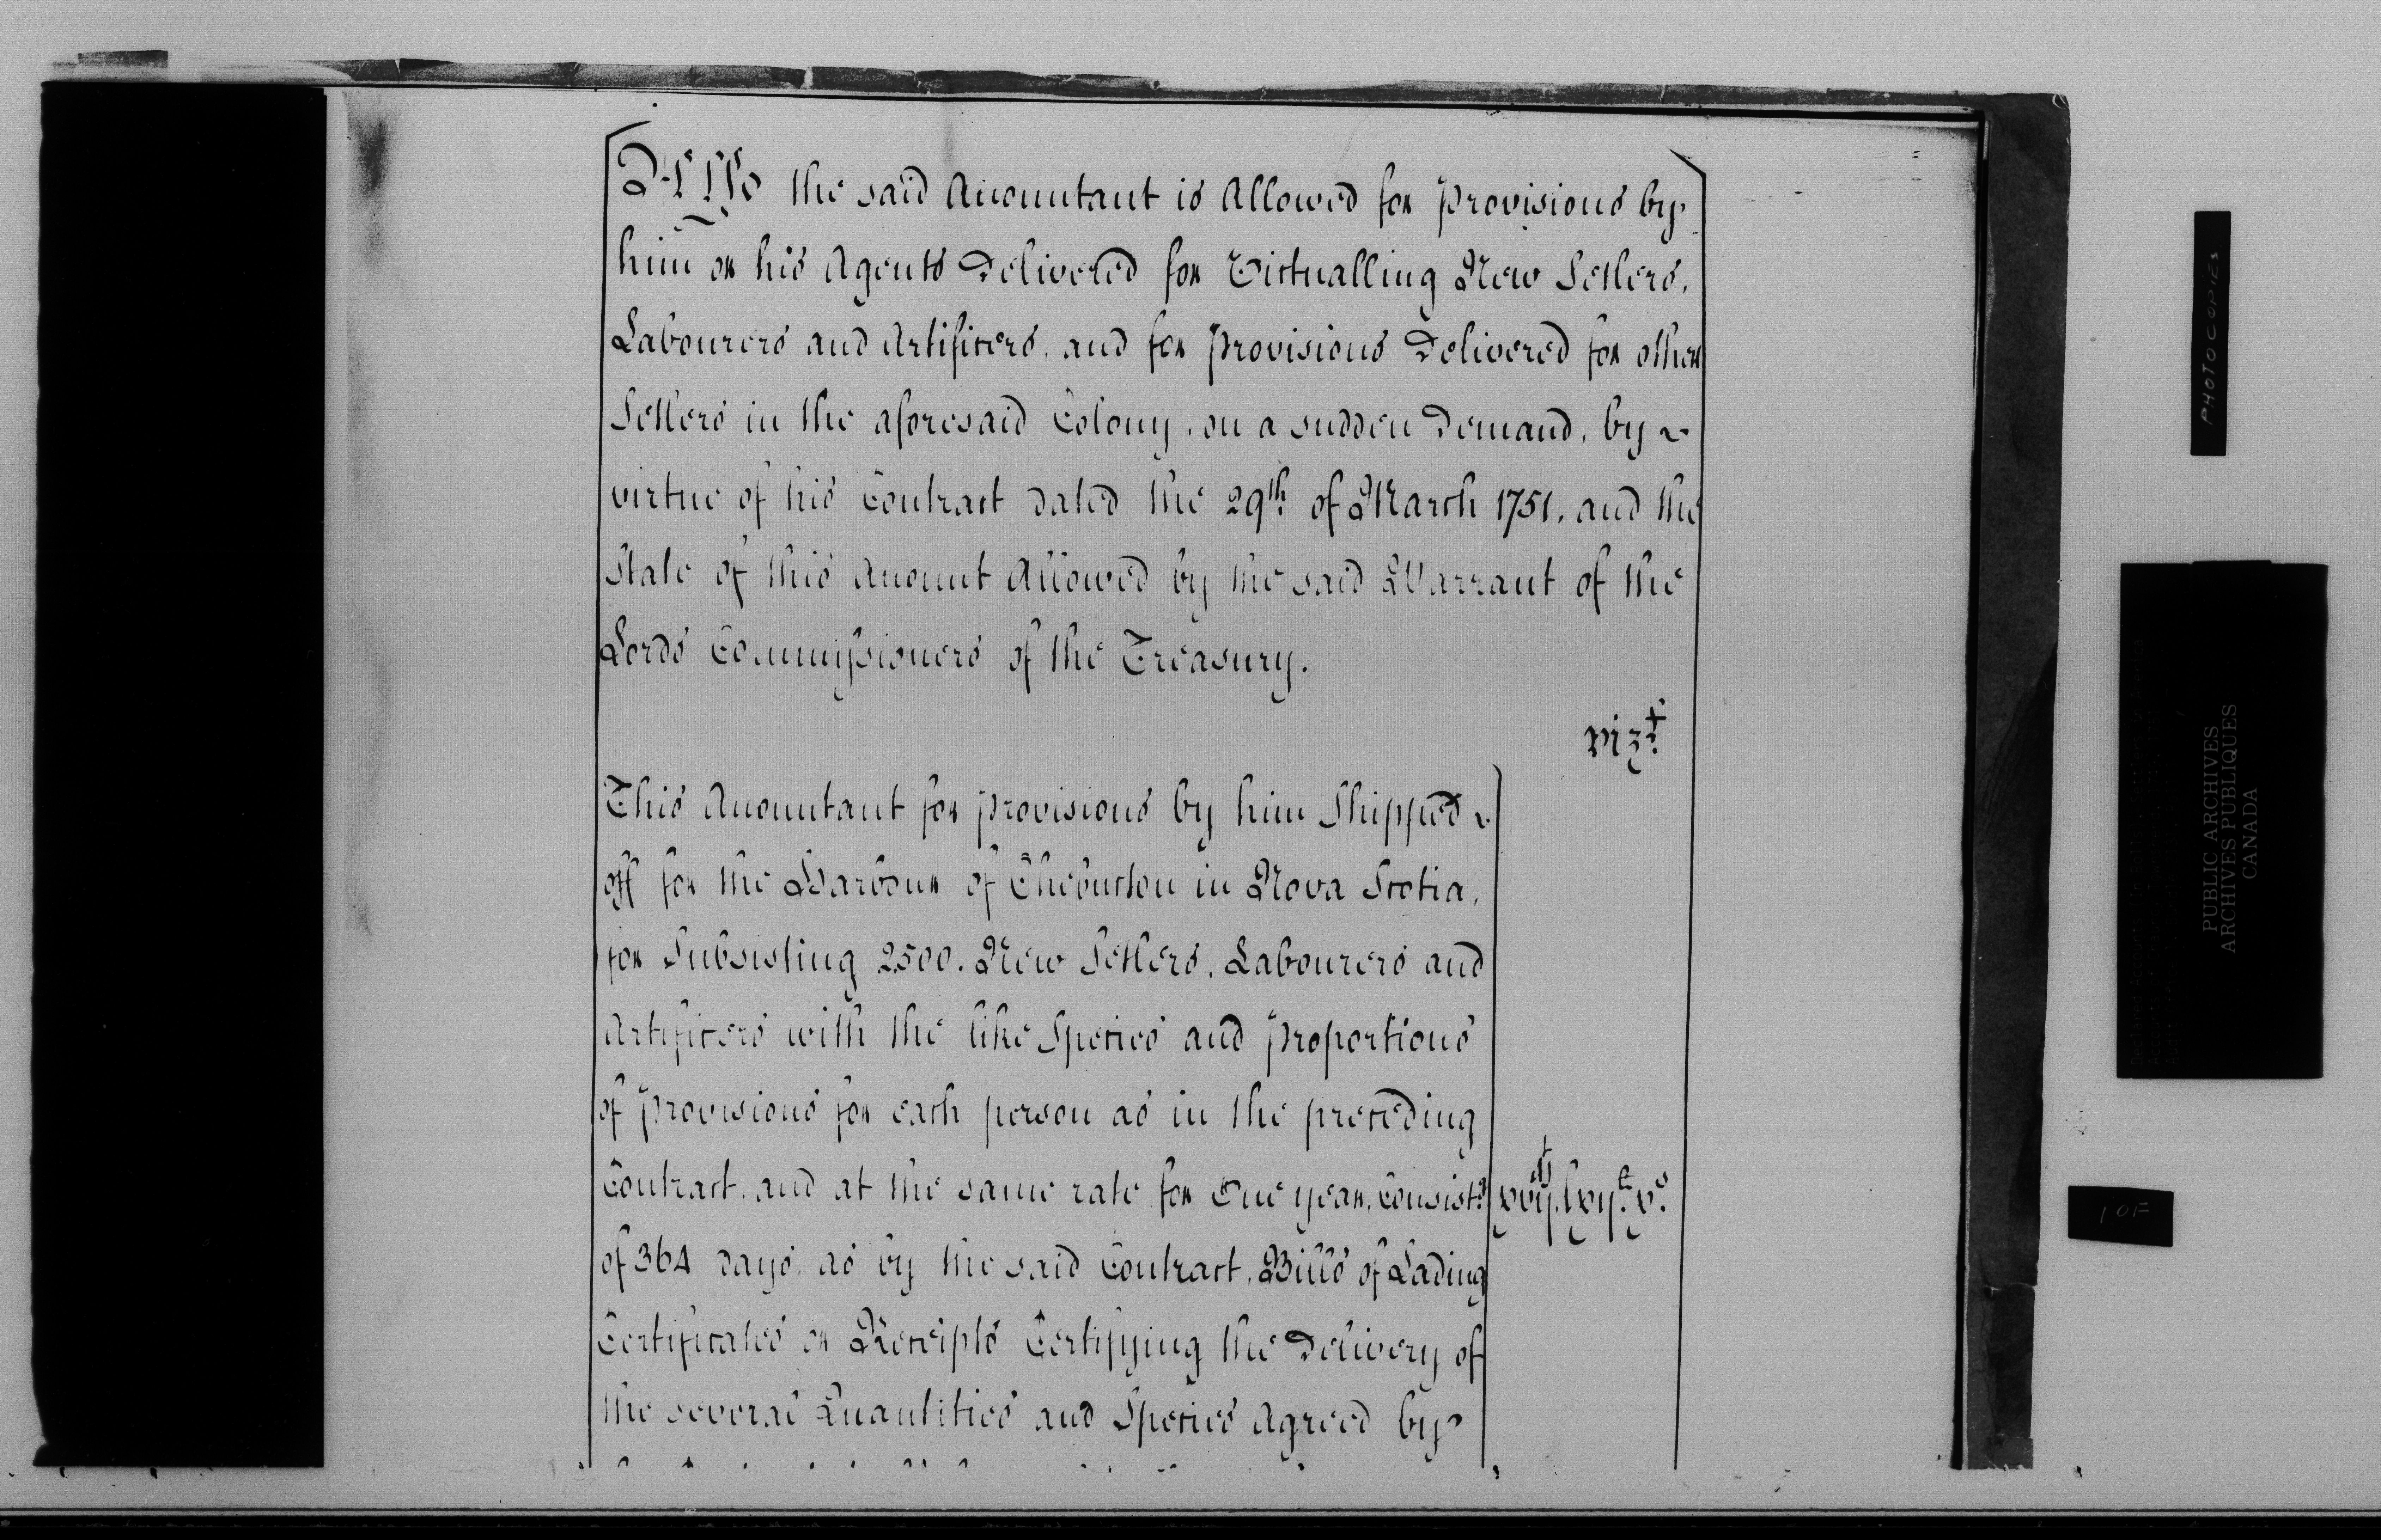 Also the said Accountant is Allowed for Provisions by
him or his Agents Delivered for Victualling New Setlers,
Labourers and Artificers, and for Provisions Delivered for other
Setlers in the aforesaid Colony, on a sudden Demand, by
virtue of his Contract dated the 29th of March 1751, and the
State of this Account Allowed by the said Warrant of the
Lords Commissioners of the Treasury.
vizt
This Accountant for Provisions by him Shipped
off for the Harbour of Chebucton in Nova Scotia,
for Subsisting 2500. New Setlers, Labourers and
Artificers with the like Species and Proportions
of Provisions for each person as in the preceding
Contract, and at the same rate for One year, Consistg
of 364 days, as by the said Contract, Bills of Lading
Certificates or Receipts Certifying the Delivery of
the several Quantities and Species Agreed by
PHOTOCOPIES
PUBLIC ARCHIVES
ARCHIVES PUBLIQUES
CANADA
10F